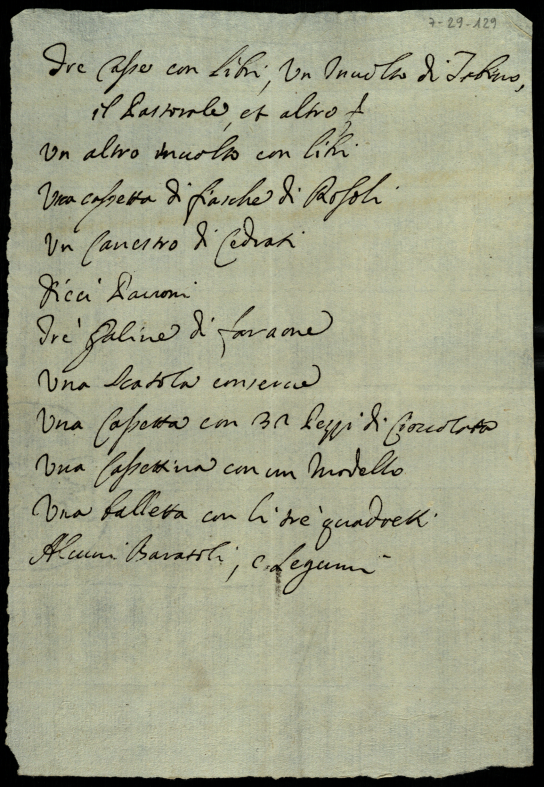 7-29-129
Tre Casse con Libri, Un Involto di
il Pastorale, et altro
Un altro involto con libri
Una cassetta di fiasche di Rosoli
Un Canestro di Cedrati
Dieci Pavoni
Trè Galine di faraone
Una Scatola conserve
Una Cassetta con 32 Pezzi di Cioccolata
Una Cassettina con un Modello
Una balletta con li trè quadretti
Alcuni Baratoli, e Legumi